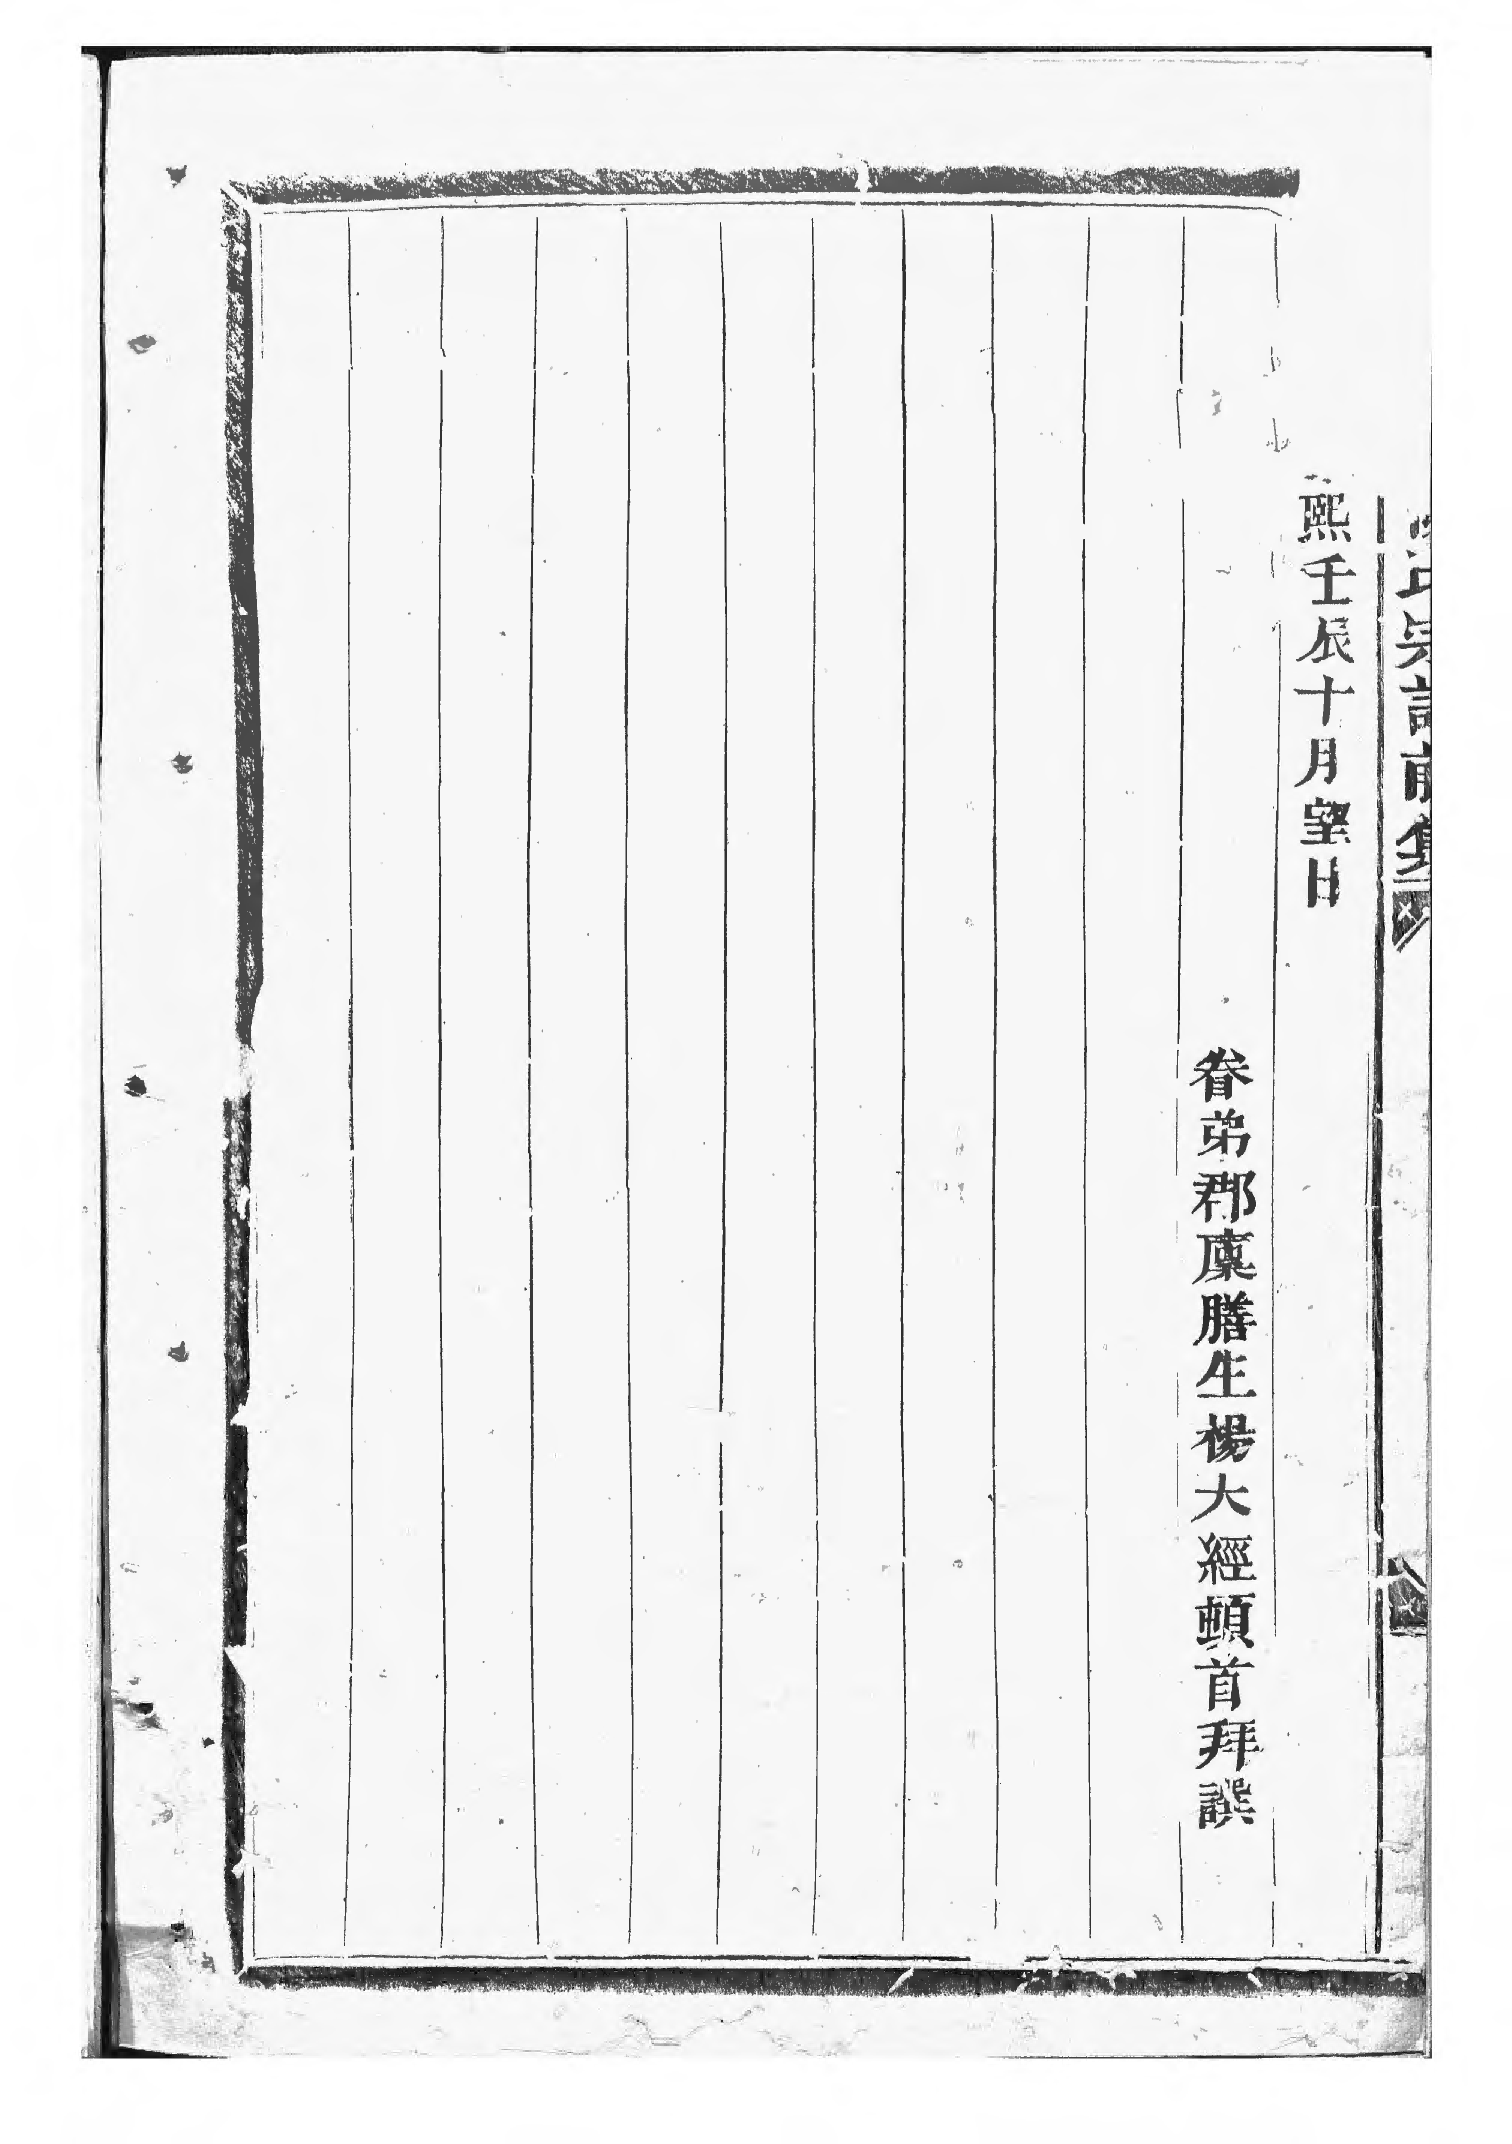 氏宗譜前集
熙壬辰十月望日
眷弟郡廩膳生楊大經頓首拜譔